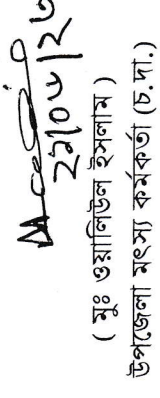 ২১/০৮/২৩
( মুঃ ওয়ালিউল ইসলাম )
উপজেলা মৎস্য কর্মকর্তা (চ.দা.)